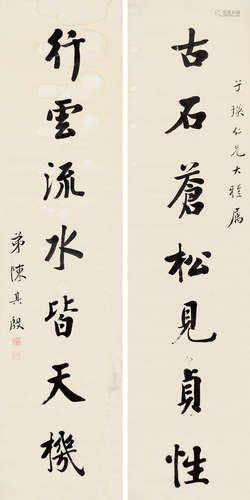 古石蒼松見貞性
子璞仁兄大雅属
行雲流水皆天機
弟陳其殷